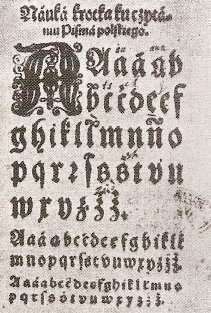 Náuká krotka ku czytá-
niu Pismá polskiego.
A a á ą b
b c ć d e ę f
g h i k l ł m n ñ o
p q r ꝛ ſ s ß t v u
w x y z ż ź.
A a á ą b c ć d e ę f g h i k l ł
m n o p q r ſ s t v u w x y z ż ź.
A a á ą b c ć d e ę f g h i k l ł m n o
p q r ſ s t v u w x y z ż ź.